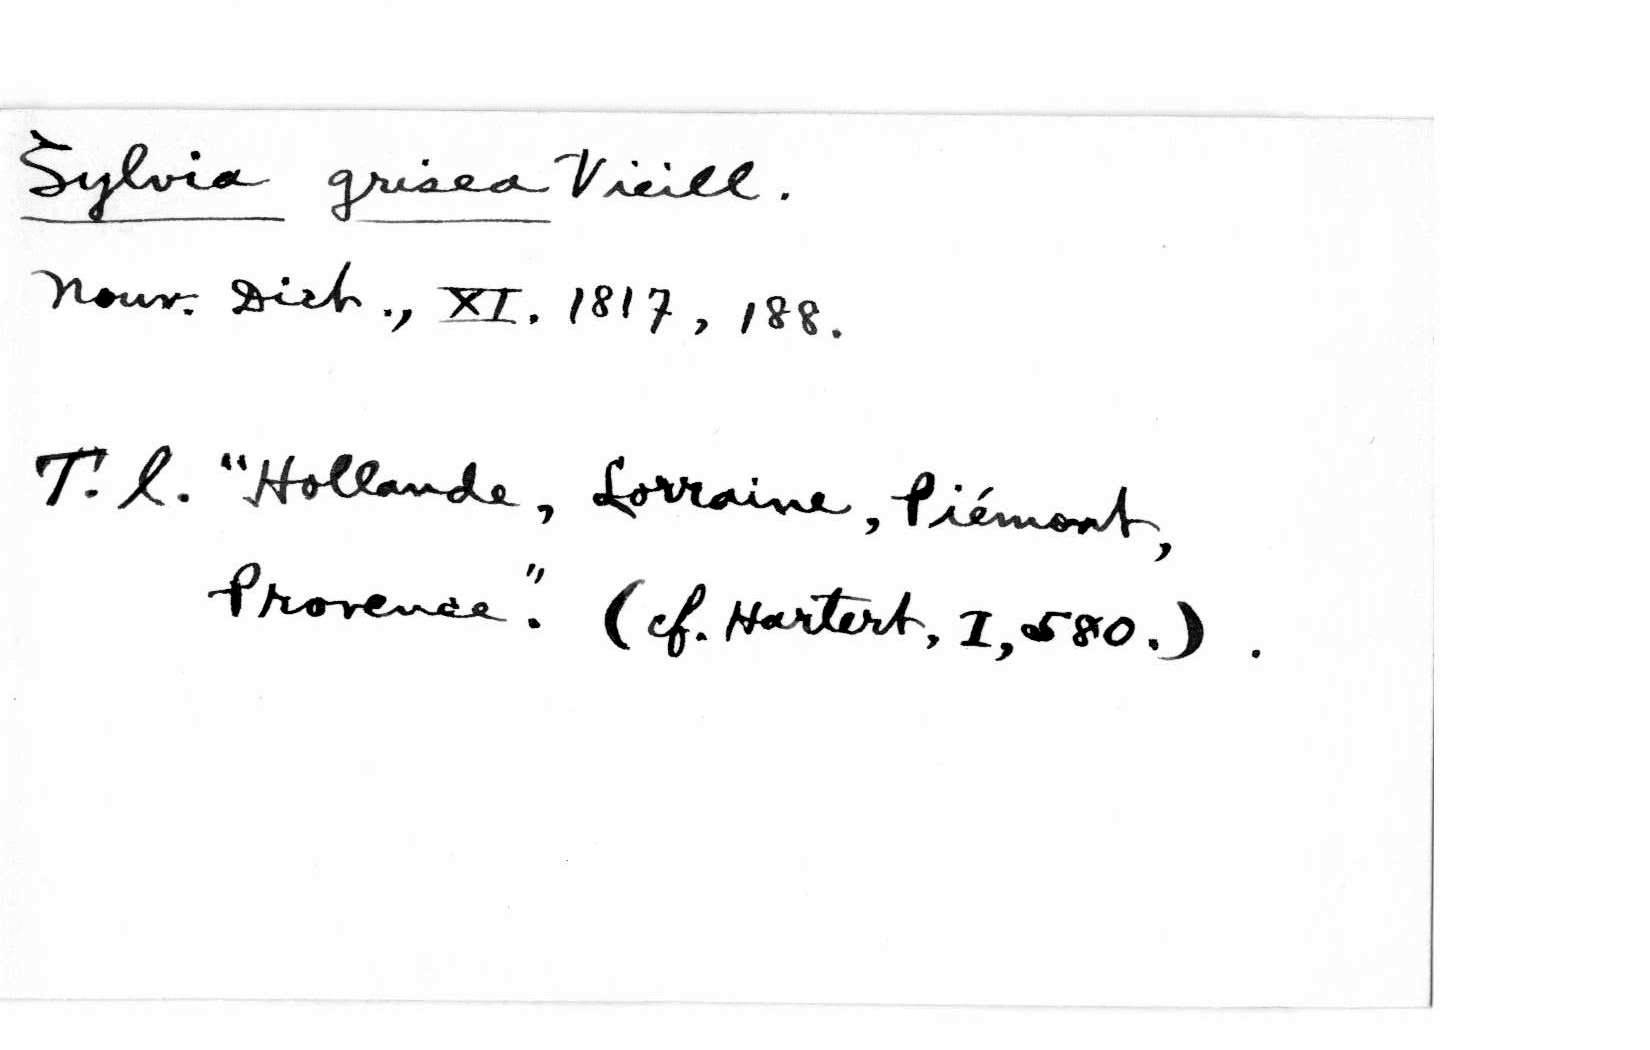 Sylvia grisea Vieill.
Nouv. Dict., XI. 1817, 188.
T. l. "Hollande, Lorraine, Piémont,
Provence". (cf. Hartert, I, 580.) .